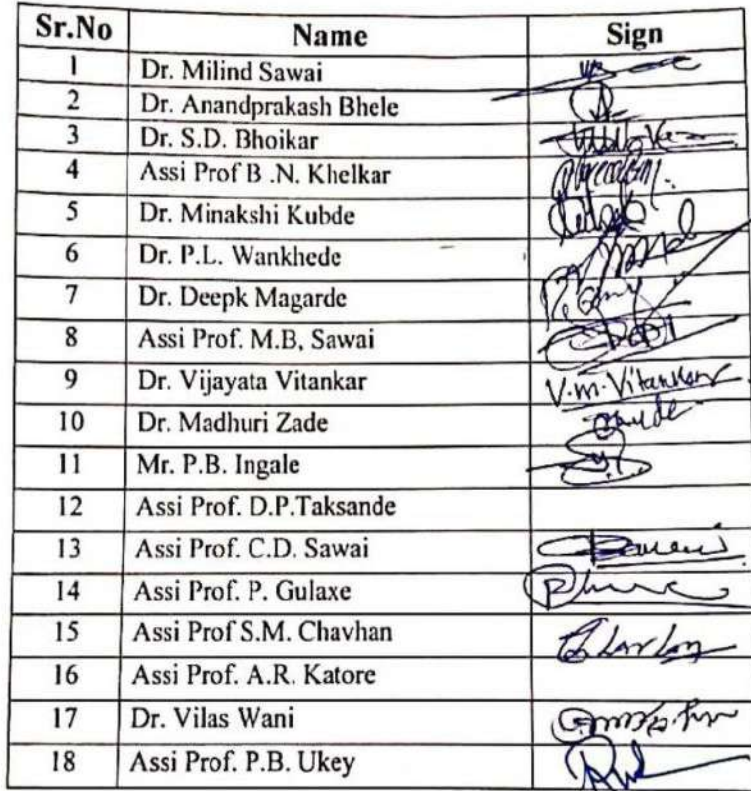 Sr.No Name Sign
1 Dr. Milind Sawai
2 Dr. Anandprakash Bhele
3 Dr. S.D. Bhoikar
4 Assi Prof B .N. Khelkar
5 Dr. Minakshi Kubde
6 Dr. P.L. Wankhede
7 Dr. Deepk Magarde
8 Assi Prof. M.B, Sawai
9 Dr. Vijayata Vitankar V.m.Vitankar
10 Dr. Madhuri Zade
11 Mr. P.B. Ingale
12 Assi Prof. D.P.Taksande
13 Assi Prof. C.D. Sawai
14 Assi Prof. P. Gulaxe
15 Assi Prof S.M. Chavhan
16 Assi Prof. A.R. Katore
17 Dr. Vilas Wani
18 Assi Prof. P.B. Ukey